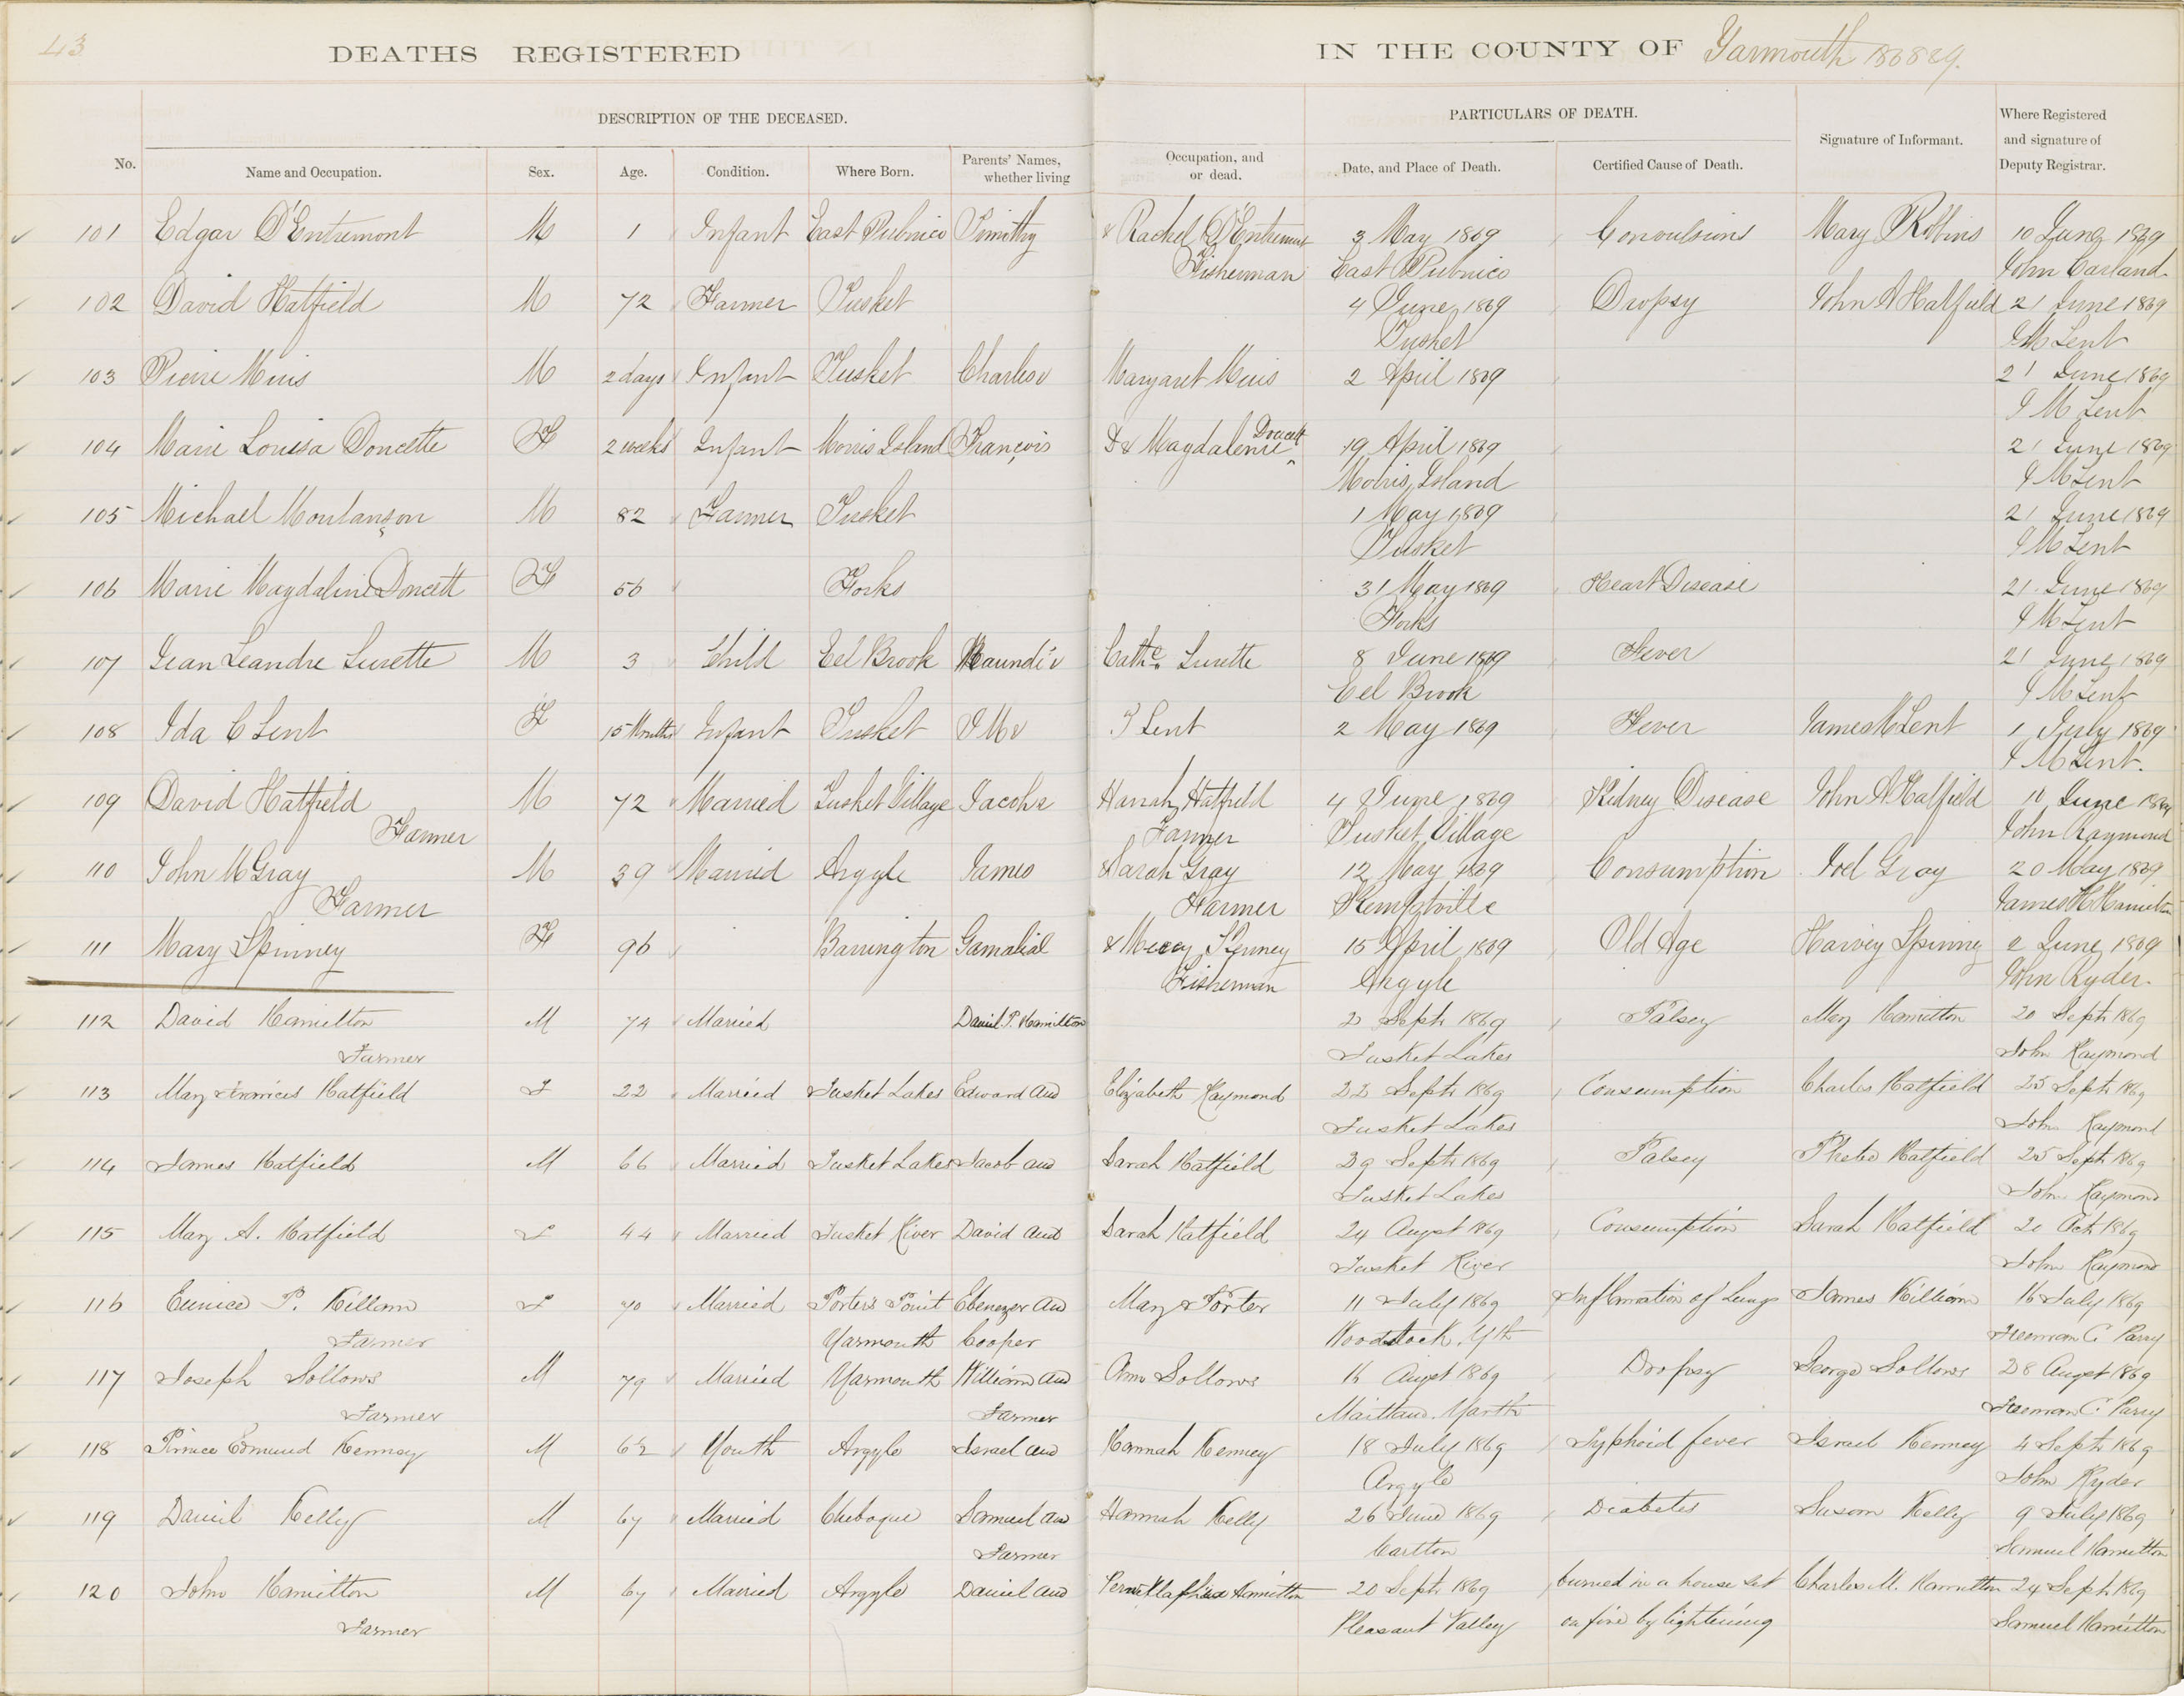 43
DEATHS REGISTERED IN THE COUNTY OF Yarmouth 1868 & 9.
DESCRIPTION OF THE DECEASED. PARTICULARS OF DEATH. Signature of Informant. Where Registered and signature of Deputy Registrar.
No. Name and Occupation. Sex. Age. Condition. Where Born. Parents' Names, whether living Occupation, and or dead. Date, and Place of Death. Certified Cause of Death.
101 Edgar D'Entremont M 1 Infant East Pubnico Timothy & Rachel D'Entremont 3 May 1869 Convulsions Mary Robbins 10 June 1869
Fisherman East Pubnico John Carland
102 David Hatfield M 72 Farmer Tusket 4 June 1869 Dropsy John A Hatfield 21 June 1869
Tusket J M Lent
103 Pierre Muis M 2 days Infant Tusket Charles & Margaret Muis 2 April 1869 21 June 1869
J M Lent
104 Marie Louisa Doucette F 2 weeks Infant Morris Island François D & Magdalenie Doucett 19 April 1869 21 June 1869
Morris Island J M Lent
105 Michael Moulanson M 82 Farmer Tusket 1 May 1869 21 June 1869
Tusket J M Lent
106 Marie Magdaline Doucett F 56 Forks 31 May 1869 Heart Disease 21 June 1869
Forks J M Lent
107 Jean Leandre Surette M 3 Child Eel Brook Maundé & Cathe Surette 8 June 1869 Fever 21 June 1869
Eel Brook J M Lent
108 Ida C Lent F 15 Months Infant Tusket J M & T Lent 2 May 1869 Fever James M Lent 1 July 1869
J M Lent.
109 David Hatfield M 72 Married Tusket Village Jacob & Hannah Hatfield 4 June 1869 Kidney Disease John A Hatfield 10 June 1869
Farmer Farmer Tusket Village John Raymond
110 John M Gray M 39 Married Argyle James & Sarah Gray 12 May 1869 Consumption Joel Gray 20 May 1869
Farmer Farmer Kemptville James H Hamilton
111 Mary Spinney F 96 Barrington Gamalial & Mercy Kenney 15 April 1869 Old Age Harvey Spinney 2 June 1869
Fisherman Argyle John Ryder.
112 David Hamilton M 74 Married Daniel P. Hamilton 2 Sept 1869 Palsey Mary Hamilton 20 Sept 1869
Farmer Tusket Lakes John Raymond
113 Mary Frances Hatfield F 22 Married Tusket Lakes Edward and Elizabeth Raymond 22 Sept 1869 Consumption Charles Hatfield 25 Sept 1869
Tusket Lakes John Raymond
114 James Hatfield M 66 Married Tusket Lakes Jacob and Sarah Hatfield 29 Sept 1869 Palsey Phebe Hatfield 25 Sept 1869
Tusket Lakes John Raymond
115 Mary A. Hatfield F 44 Married Tusket River David and Sarah Hatfield 24 Augst 1869 Consumption Sarah Hatfield 20 Oct 1869
Tusket River John Raymond
116 Eunice P. Killam F 70 Married Porter's Point Ebenezer and Mary Porter 11 July 1869 Inflmation of Lungs James Killiam 16 July 1869
Farmer Yarmouth Cooper Woodstock. Yth Freeman C. Parry
117 Joseph Sollows M 79 Married Yarmouth William and Ann Sollows 16 Augst 1869 Dropsy George Sollows 28 Augst 1869
Farmer Farmer Maitland. Yarth Freeman C. Parry
118 Prince Edmund Kenney M 6½ Youth Argyle Israel and Hannah Kenney 18 July 1869 Typhoid fever Israel Kenney 4 Sept 1869
Argyle John Ryder
119 Daniel Kelley M 67 Married Chebogue Samuel and Hannah Kelly 26 June 1869 Diabetes Susom Kelley 9 July 1869
Farmer Carlton Samuel Hamilton
120 John Hamilton M 67 Married Argyle Daniel and Hamilton 20 Sept 1869 burned in a house set Charles M. Hamilton 24 Sept 1869
Farmer Pleasant Valley on fire by lightening Samuel Hamilton